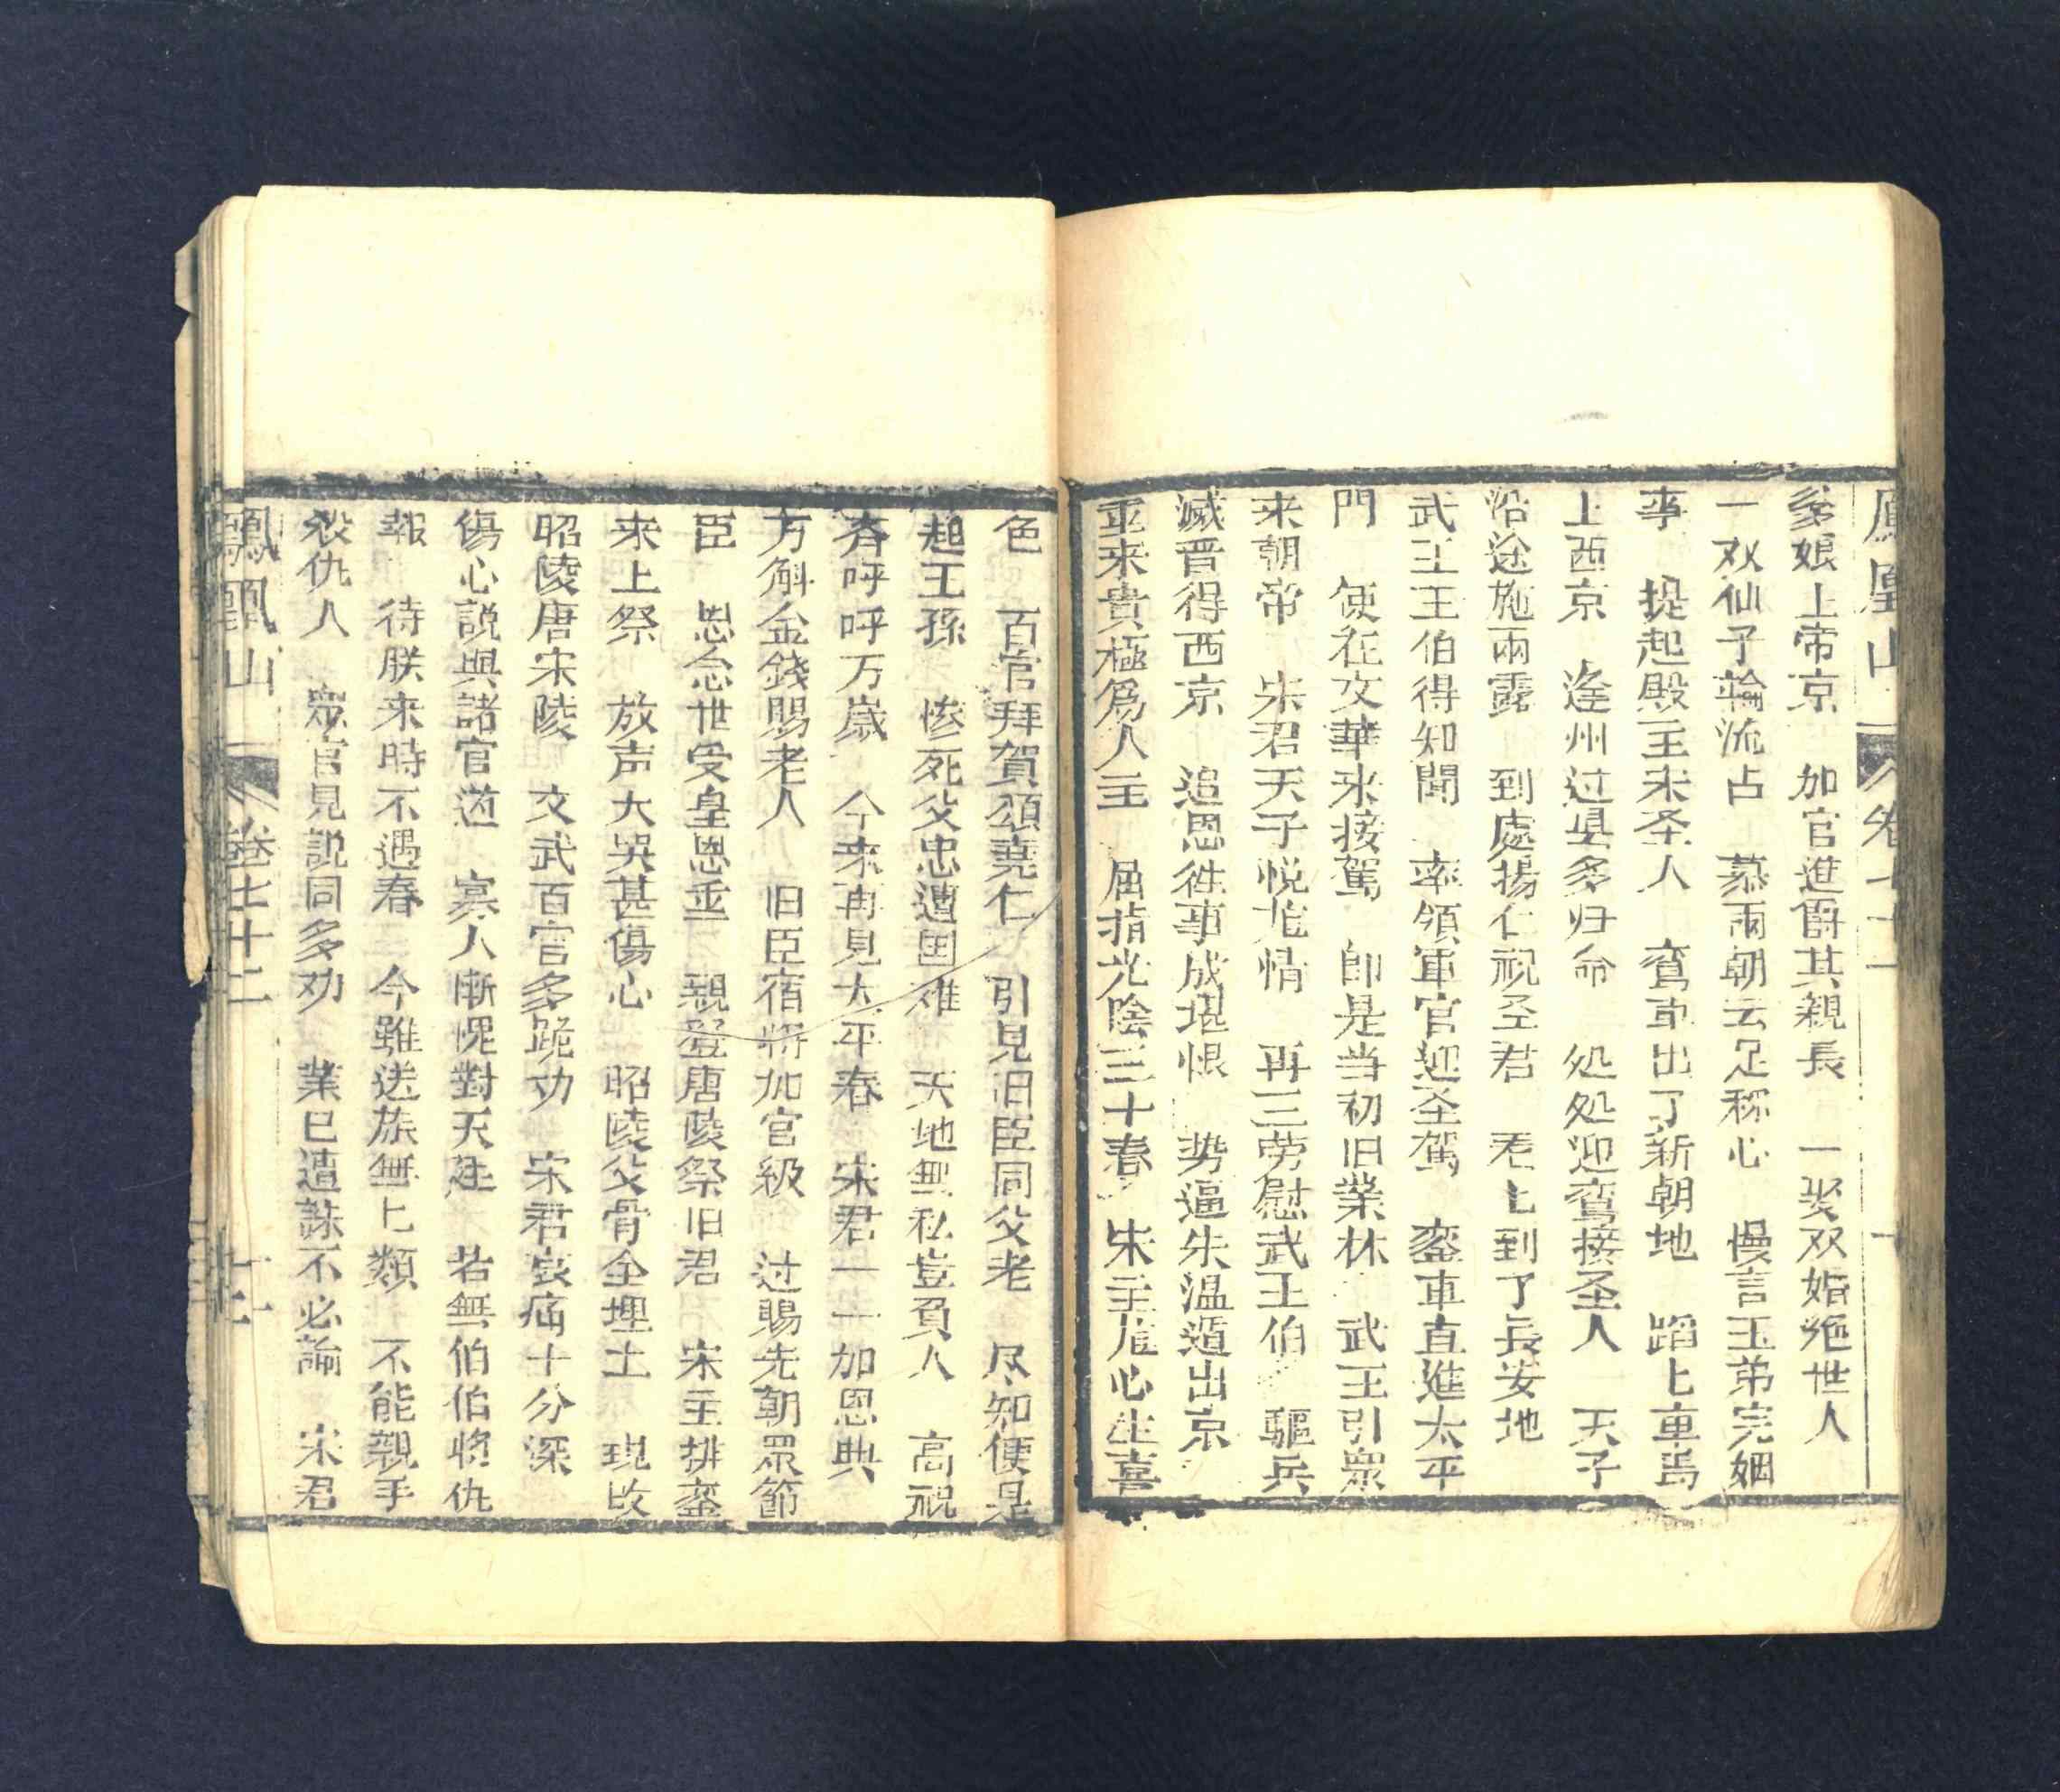 鳳凰山 卷七十二
爹娘上帝京 加官進爵其親長 一娶双婚绝世人
一双仙子輪流占 慕雨朝云足称心 慢言玉弟完姻
事 提起殿主未圣人 鸾車出了新朝地 蹈上車馬
上西京 逢州过县多归命 処処迎鸾接圣人 天子
沿途施雨露 到處揚仁祝圣君 看匕到了長安地
武王王伯得知聞 率領軍官迎圣駕 銮車直進太平
門 便在文華来接駕 即是当初旧業林 武王引衆
来朝帝 宋君天子悦龙情 再三劳慰武王伯 驅兵
滅晋得西京 追思徃事成堪恨 势逼朱温遁出京
重来貴極爲人主 屈指光陰三十春 朱主龙心生喜
色 百官拜賀頌堯仁 引見旧臣同父老 尽知便是
趙王孫 惨死父忠遭国难 天地無私豈負人 高祝
齐呼呼万嵗 今来再見大平春 宋君一一加恩典
万斛金錢賜老人 旧臣宿将加官級 过賜先朝眾節
臣 恩念世受皇恩重 親登唐陵祭旧君 宋主排銮
来上祭 放声大哭甚傷心 昭陵父骨全埋土 現改
昭陵唐宋陵 文武百官多跪劝 宋君哀痛十分深
傷心説與諸官道 寡人慚愧對天廷 若無伯伯將仇
報 待朕来時不遇春 今雖送族無匕類 不能親手
殺仇人 眾官見説同多劝 業已遭誅不必論 宋君
鳳凰山 卷七十二 十二